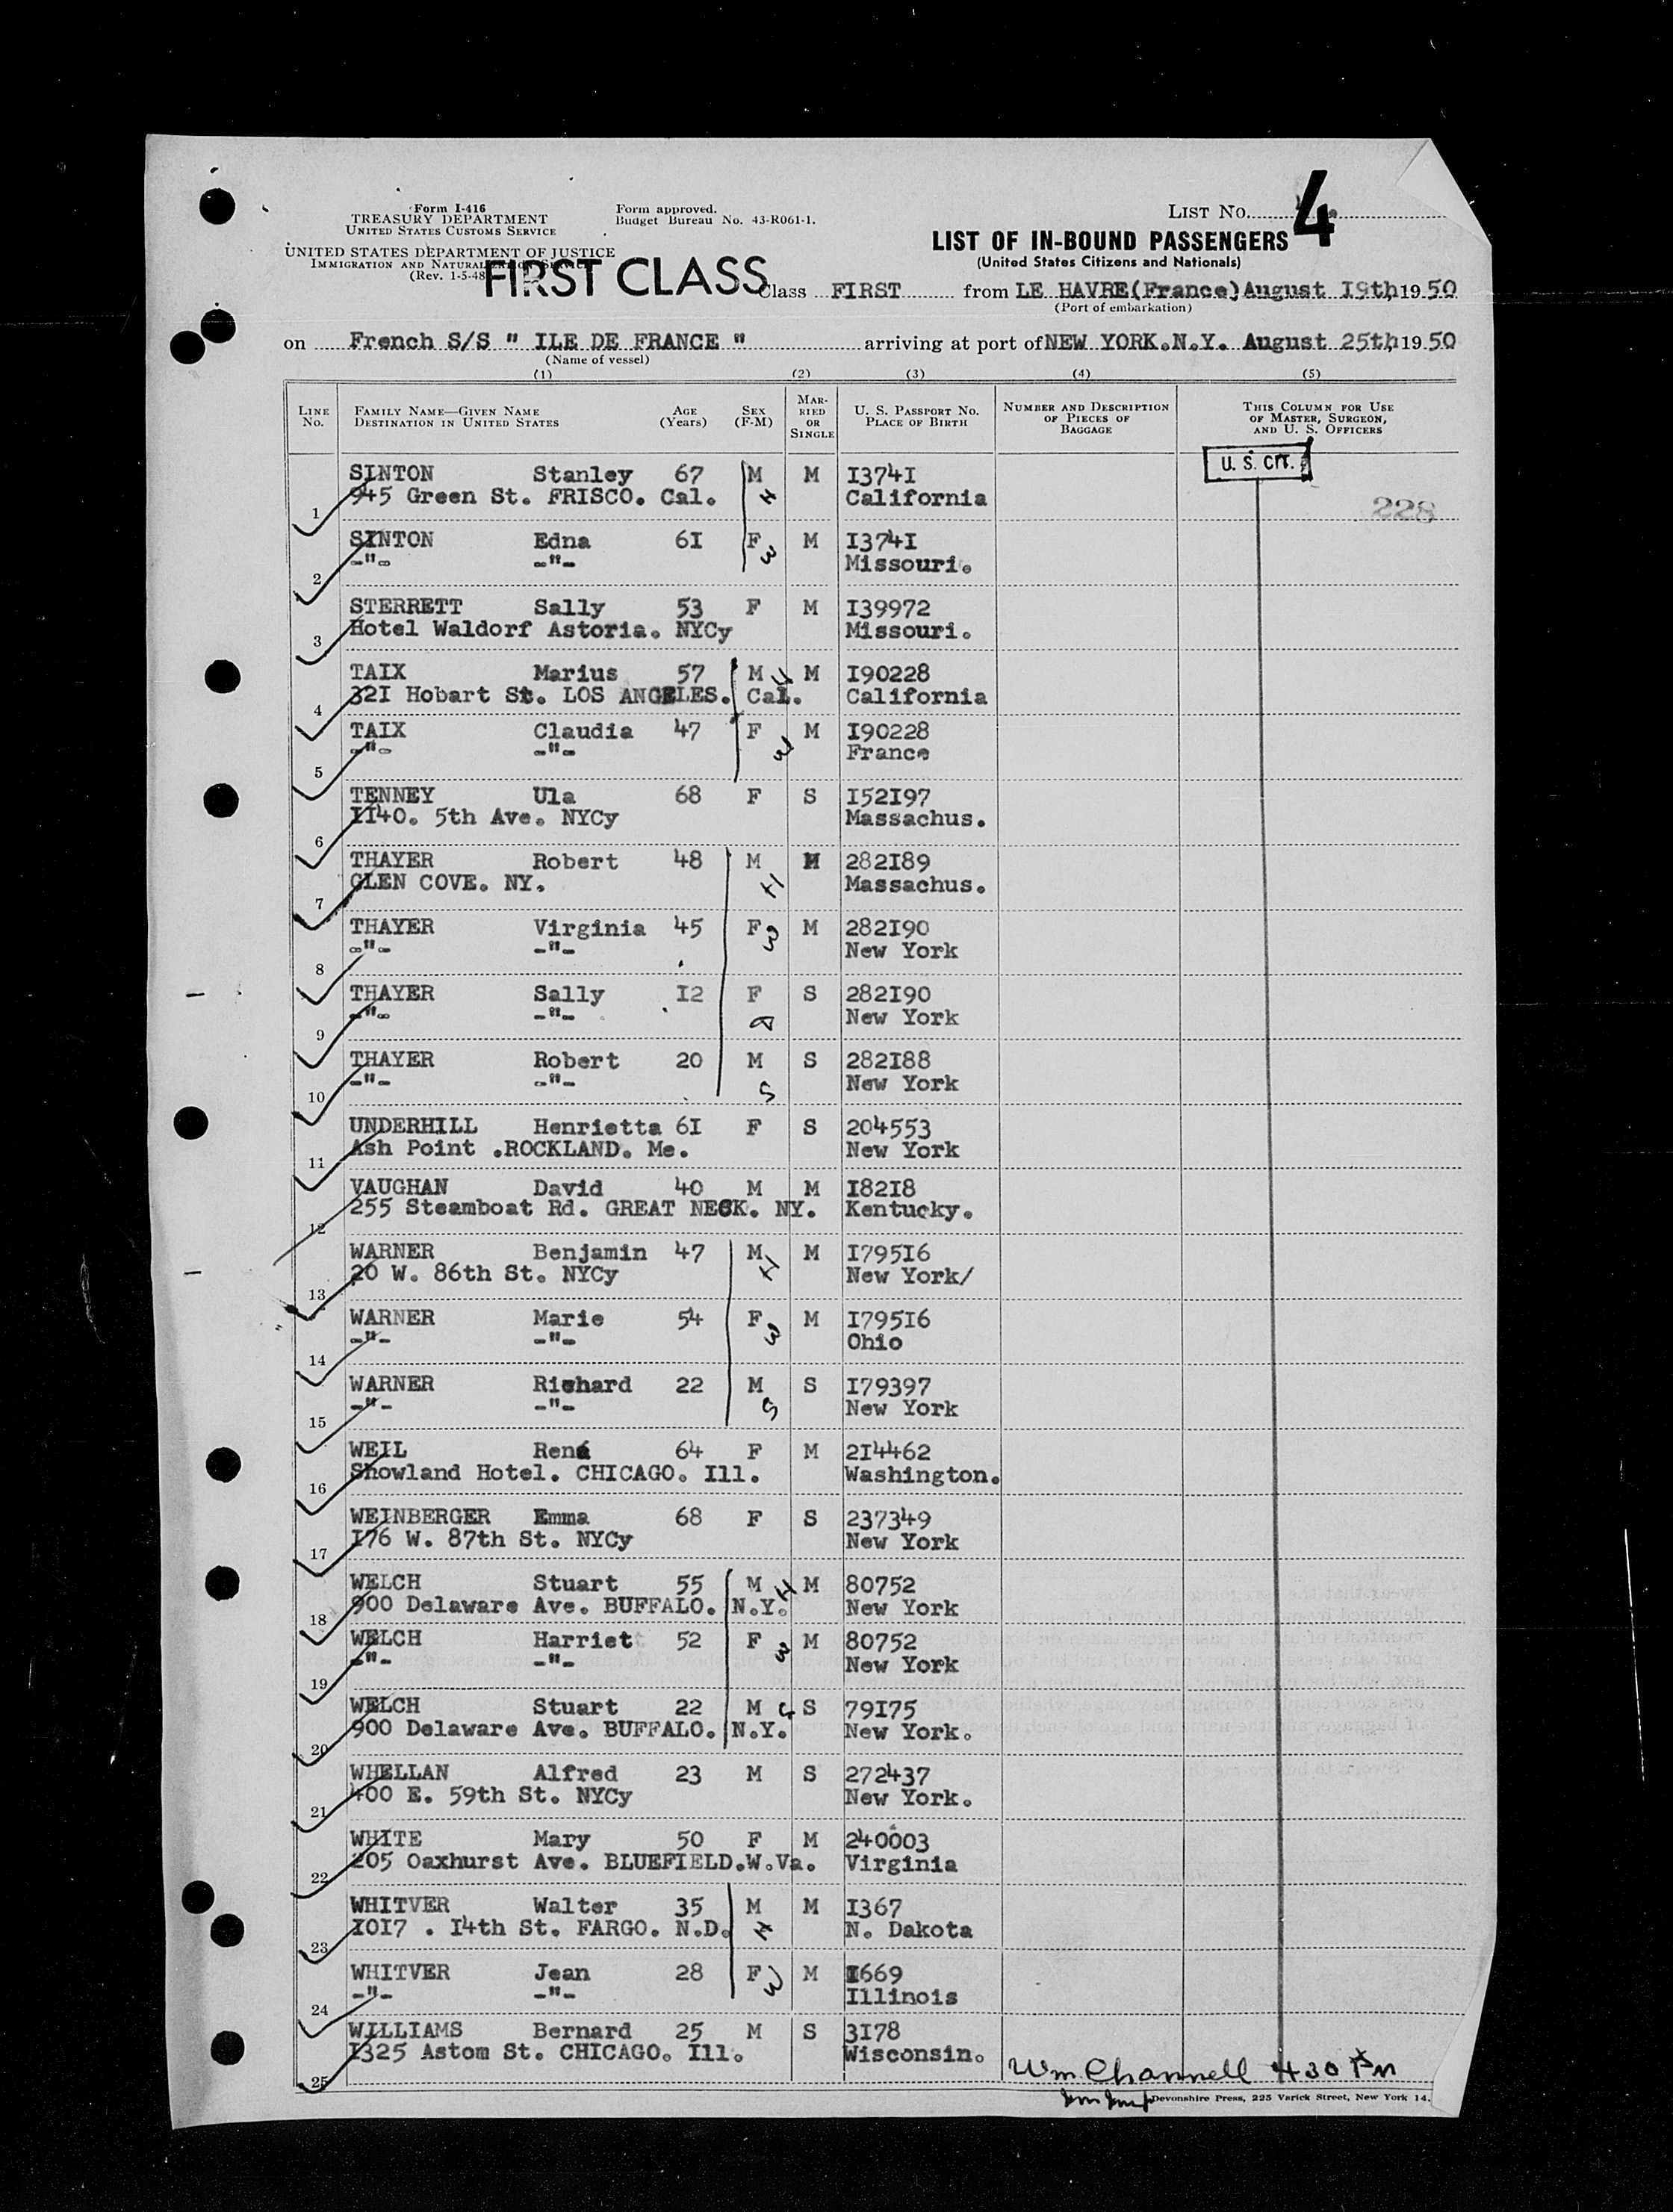 Form I-416
TREASURY DEPARTMENT
UNITED STATES CUSTOMS SERVICE
UNITED STATES DEPARTMENT OF JUSTICE
IMMIGRATION AND
(Rev. 1-5-48
Form approved.
Budget Bureau No. 43-R061-1.
LIST NO. 4
LIST OF IN-BOUND PASSENGERS
(United States Citizens and Nationals)
FIRST CLASS
Class FIRST from LE HAVRE(France)August I9th,1950
(Port of embarkation)
on French S/S " ILE DE FRANCE " arriving at port of NEW YORK.N.Y. August 25th,1950
(Name of vessel)
(1) (2) (3) (4) (5)
LINE NO. FAMILY NAME—GIVEN NAME DESTINATION IN UNITED STATES AGE (Years) SEX (F-M) MARRIED OR SINGLE U. S. PASSPORT NO. PLACE OF BIRTH NUMBER AND DESCRIPTION OF PIECES OF BAGGAGE THIS COLUMN FOR USE OF MASTER, SURGEON, AND U. S. OFFICERS
U. S. CIT.
228
SINTON Stanley 67 M M I374I
1 945 Green St. FRISCO. Cal. H California
SINTON Edna 6I F M I374I
2 -"- -"- W Missouri.
STERRETT Sally 53 F M I39972
3 Hotel Waldorf Astoria. NYCy Missouri.
TAIX Marius 57 M H M I90228
4 32I Hobart St. LOS ANGELES. Cal. California
TAIX Claudia 47 F M I90228
5 -"- -"- W France
TENNEY Ula 68 F S I52I97
6 II40. 5th Ave. NYCy Massachus.
THAYER Robert 48 M M 282I89
7 GLEN COVE. NY. H Massachus.
THAYER Virginia 45 F W M 282I90
8 -"- -"- New York
THAYER Sally I2 F S 282I90
9 -"- -"- D New York
THAYER Robert 20 M S 282I88
10 -"- -"- S New York
UNDERHILL Henrietta 6I F S 204553
11 Ash Point .ROCKLAND. Me. New York
VAUGHAN David 40 M M I82I8
12 255 Steamboat Rd. GREAT NECK. NY. Kentucky.
WARNER Benjamin 47 M M I795I6
13 20 W. 86th St. NYCy H New York/
WARNER Marie 54 F M I795I6
14 -"- -"- W Ohio
WARNER Richard 22 M S I79397
15 -"- -"- S New York
WEIL René 64 F M 2I4462
16 Showland Hotel. CHICAGO. Ill. Washington.
WEINBERGER Emma 68 F S 237349
17 I76 W. 87th St. NYCy New York
WELCH Stuart 55 M H M 80752
18 900 Delaware Ave. BUFFALO. N.Y. New York
WELCH Harriet 52 F W M 80752
19 -"- -"- New York
WELCH Stuart 22 M S S 79I75
20 900 Delaware Ave. BUFFALO. N.Y. New York.
WHELLAN Alfred 23 M S 272437
21 400 E. 59th St. NYCy New York.
WHITE Mary 50 F M 240003
22 205 Oaxhurst Ave. BLUEFIELD.W.Va. Virginia
WHITVER Walter 35 M M I367
23 I0I7 . I4th St. FARGO. N.D. H N. Dakota
WHITVER Jean 28 F W M I669
24 -"- -"- Illinois
WILLIAMS Bernard 25 M S 3I78
25 I325 Astom St. CHICAGO. Ill. Wisconsin.
Wm Channell 430 PM
Devonshire Press, 225 Varick Street, New York 14.